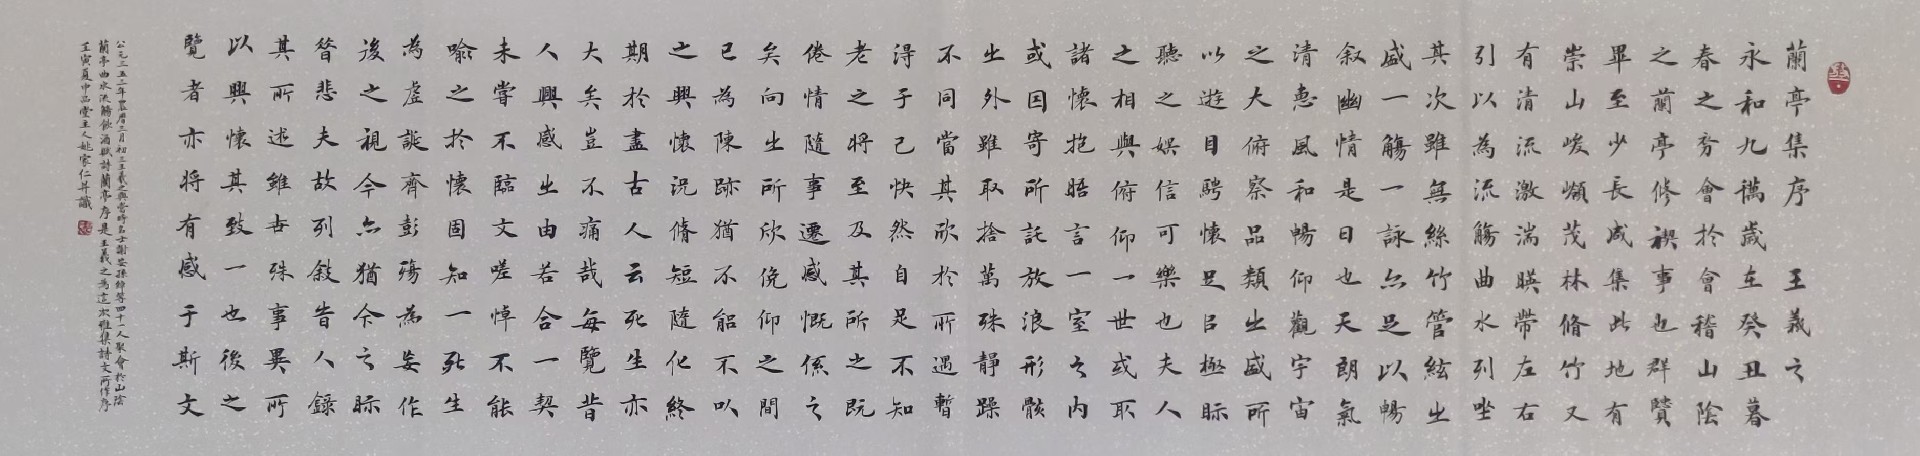 蘭亭集序 王羲之
永和九年歲在癸丑暮
春之初會於會稽山陰
之蘭亭修禊事也群賢
畢至少長咸集此地有
崇山峻嶺茂林脩竹又
有清流激湍暎帶左右
引以為流觴曲水列坐
其次雖無絲竹管絃之
盛一觴一詠亦足以暢
叙幽情是日也天朗氣
清惠風和暢仰觀宇宙
之大俯察品類之盛所
以遊目騁懷足㠯極視
聽之娛信可樂也夫人
之相與俯仰一世或取
諸懷抱晤言一室之內
或因寄所託放浪形骸
之外雖取捨萬殊靜躁
不同當其欣於所遇暫
得于己快然自足不知
老之將至及其所之既
倦情隨事遷感慨係之
矣向之所欣俛仰之間
已為陳跡猶不能不以
之興懷況脩短隨化終
期於盡古人云死生亦
大矣豈不痛哉每覽昔
人興感之由若合一契
未嘗不臨文嗟悼不能
喻之於懷固知一死生
為虛誕齊彭殤為妄作
後之視今亦猶今之視
昔悲夫故列敘昔人錄
其所述雖世殊事異所
以興懷其致一也後之
覽者亦將有感于斯文
公元三五三年農曆三月初三王羲之與當時名士謝安孫綽等四十一人聚會於山陰
蘭亭曲水流觴飲酒賦詩蘭亭序是王羲之為這次雅集詩文所作序
壬寅夏中品堂主人姚家仁并識